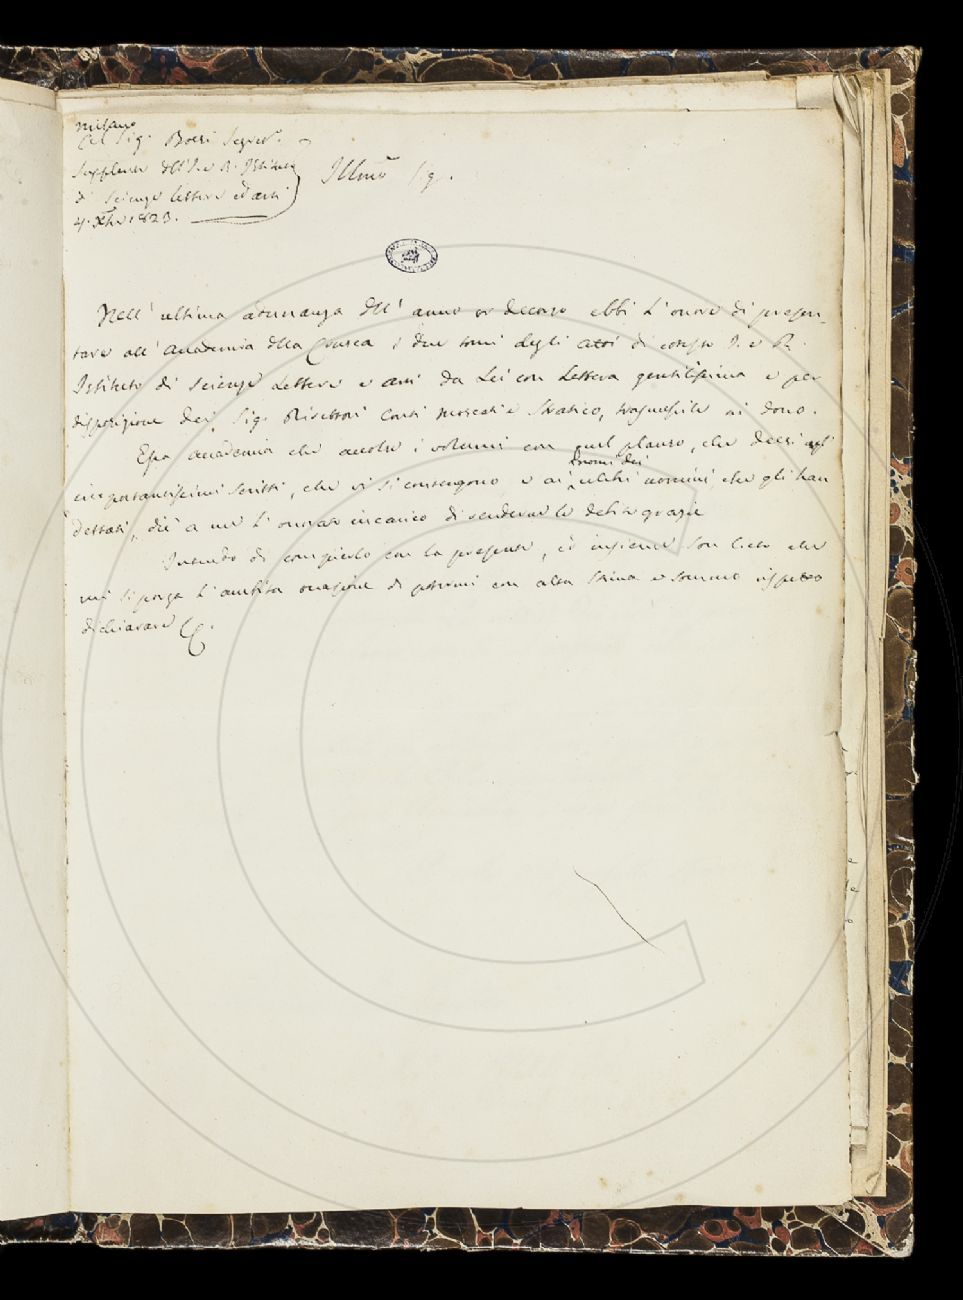 Milano
Al Sig. Bossi Segret.º
Supplente dell'I. e R. Istituto
di Scienze Lettere ed arti
4. Xbre 1823.
Illmo Sig.
Nell'ultima adunanza dell'anno or decorso ebbi l'onore di presen-
tare all'Accademia della Crusca i due tomi degli atti di cotesto I. e R.
Istituto di Scienze Lettere e arti da Lei con Lettera gentilissima e per
disposizione dei Sig. Direttori Conti Moscati e Stratico, trasmessile in dono.
Essa Accademia che accolse i volumi con quel plauso, che deesi agli
importantissimi scritti, che vi si contengono e ai
nomi dei
celebri uomini, che gli han
dettati, diè a me l'onorato incarico di renderne le debite grazie
Intendo di compierlo con la presente, ed insieme son lieto che
mi si porga l'ambita occasione di potermi con alta stima e sommo rispetto
dichiarare